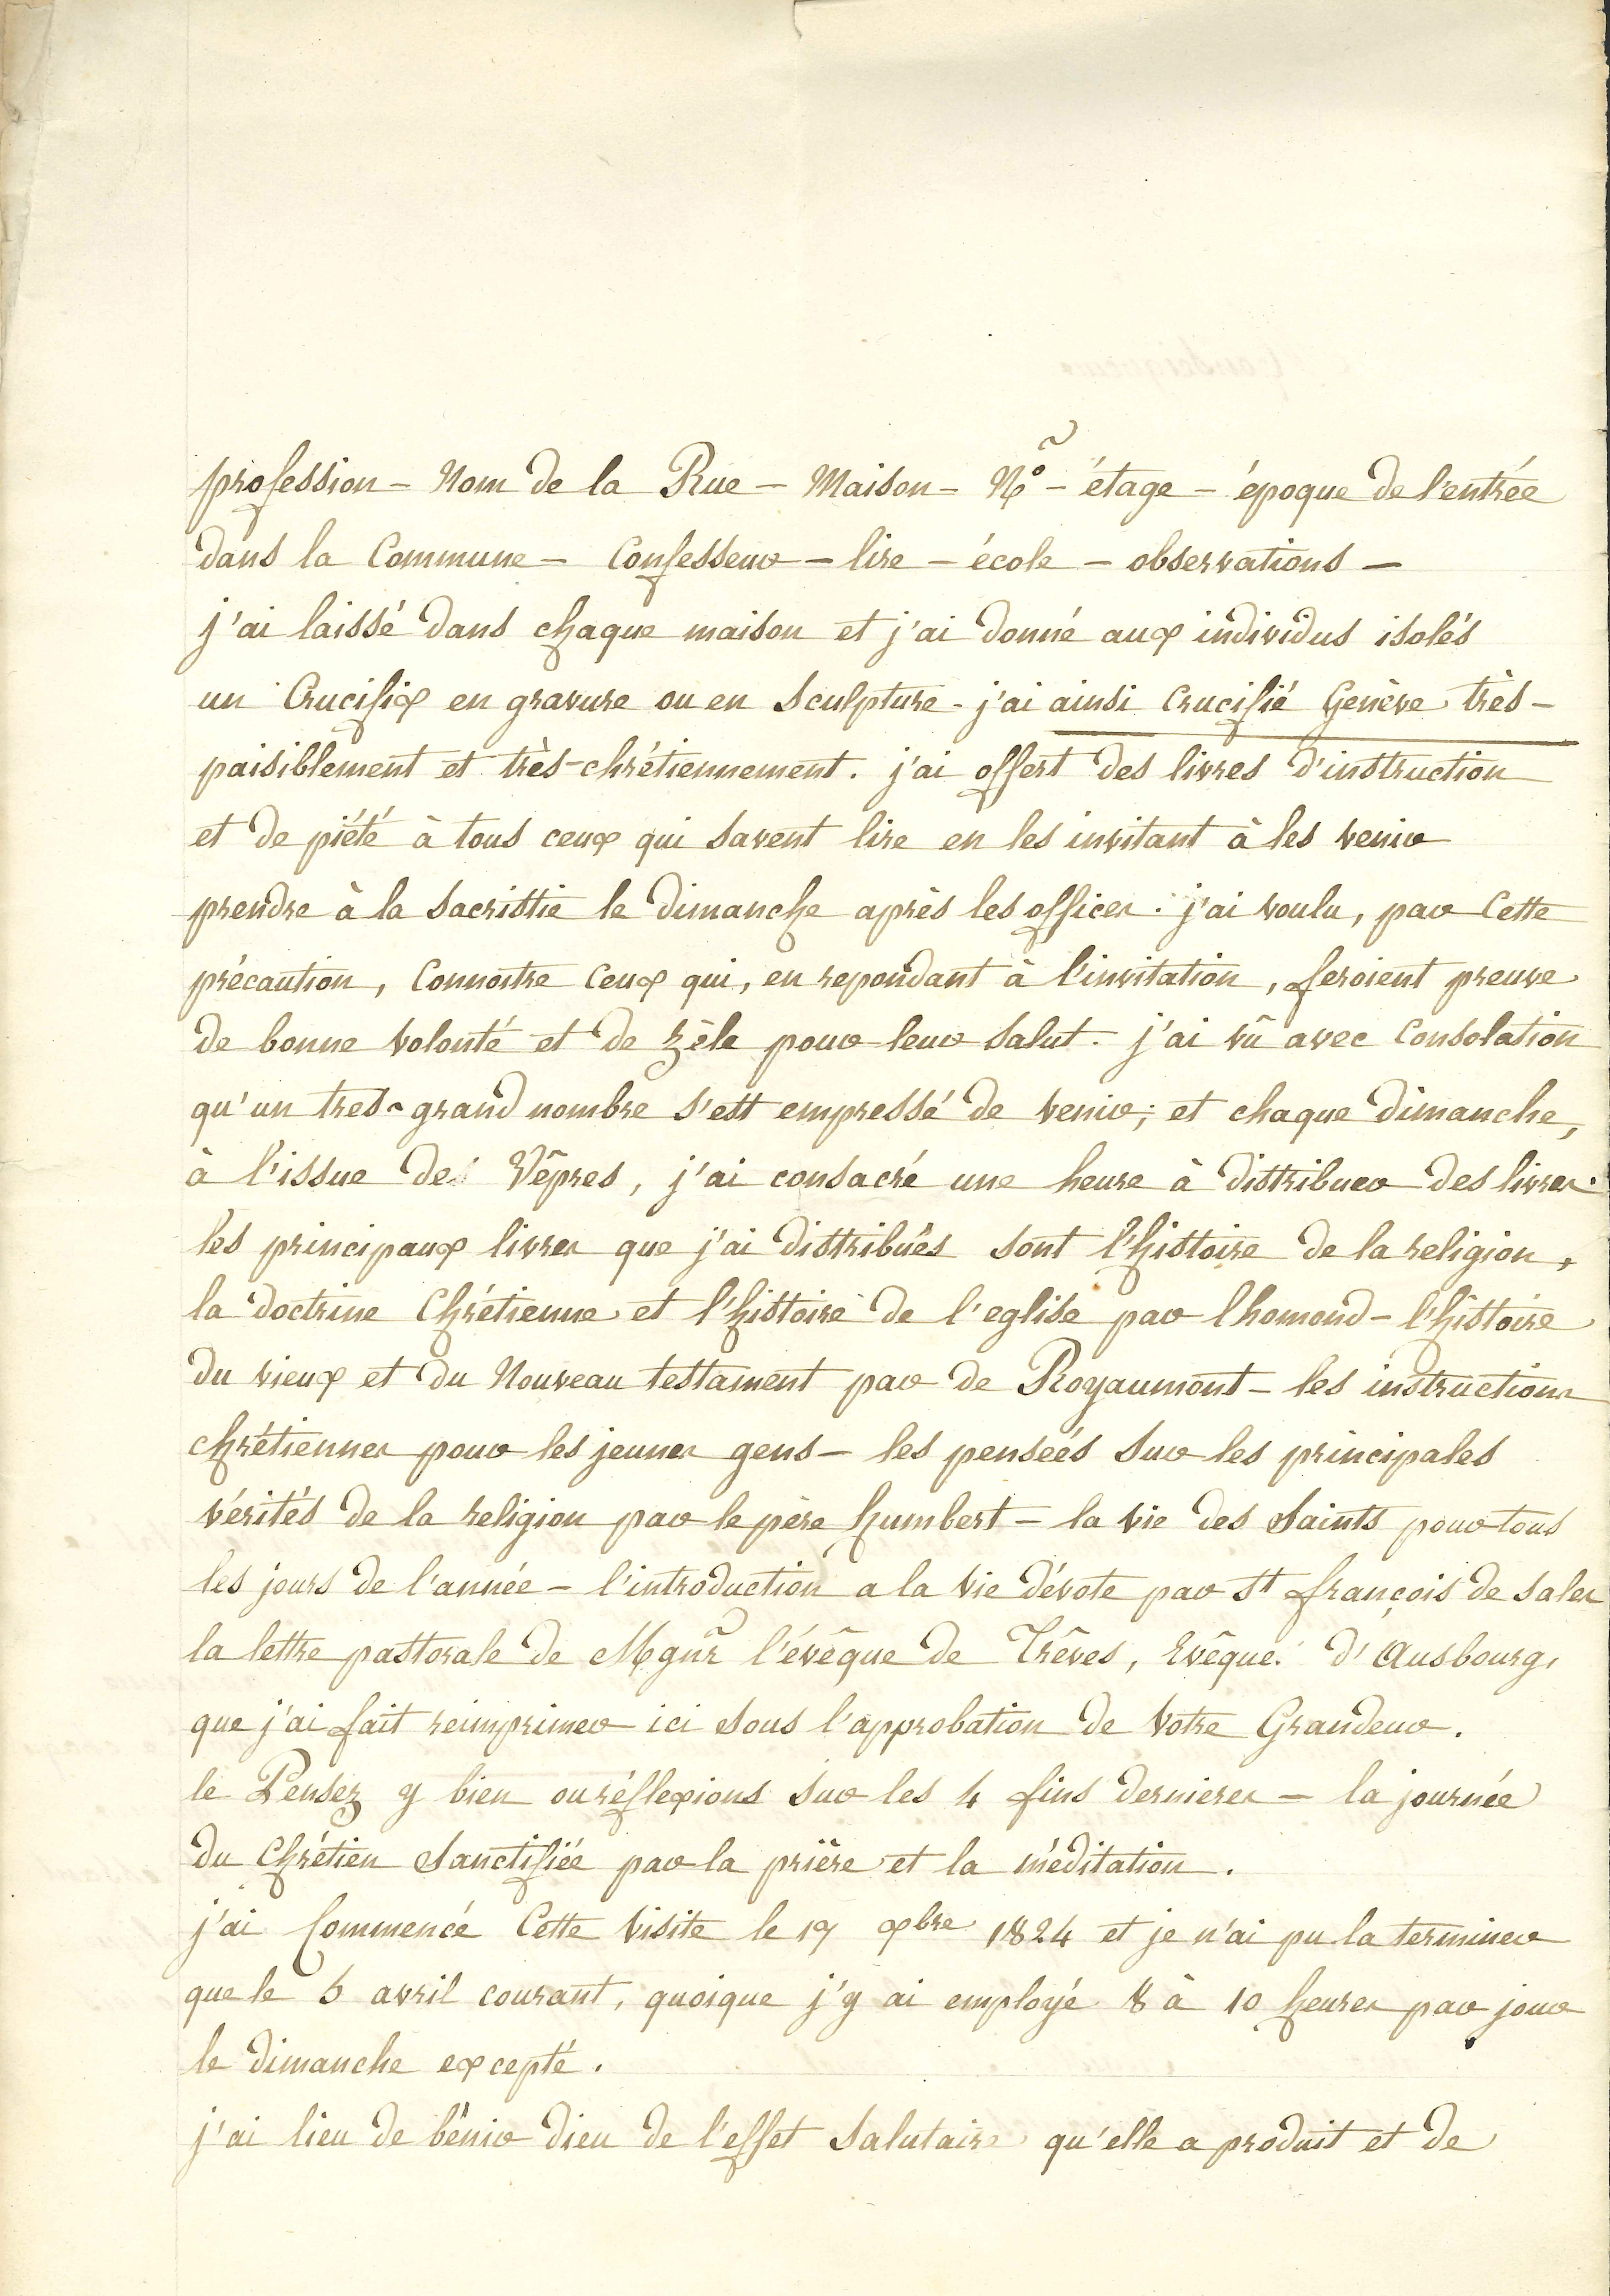 profession - Nom de la Rue - Maison - N° - étage - époque de l'entrée
dans la Commune - Confesseur - lire - école - observations -
j'ai laissé dans chaque maison et j'ai donné aux individus isolés
un Crucifix en gravure ou en sculpture - j'ai ainsi Crucifié Genève très-
paisiblement et très-chrétiennement. j'ai offert des livres d'instruction
et de piété à tous ceux qui savent lire en les invitant à les venir
prendre à la sacristie le dimanche après les offices. j'ai voulu, par cette
précaution, Connoitre Ceux qui, en repondant à l'invitation, feroient preuve
de bonne volonté et de zèle pour leur salut. j'ai vû avec Consolation
qu'un tres-grand nombre s'est empressé de venir; et chaque dimanche,
à l'issue des Vêpres, j'ai consacré une heure à distribuer des livres.
les principaux livres que j'ai distribués sont l'histoire de la religion,
la doctrine Chrétienne et l'histoire de l'eglise par lhomond - l'histoire
du vieux et du Nouveau testament par de Royaumont - les instructions
chrétiennes pour les jeunes gens - les pensées sur les principales
vérités de la religion par le père humbert - la vie des Saints pour tous
les jours de l'année - l'introduction a la vie dévote par St françois de sales
la lettre pastorale de Mgnr l'évêque de Trêves, Evêque d'Ausbourg,
que j'ai fait reimprimer ici sous l'approbation de Votre Grandeur.
le Pensez y bien ou réflexions sur les 4 fins dernieres - la journée
du Chrétien Sanctifiée par la prière et la méditation.
j'ai Commencé Cette visite le 19 xbre 1824 et je n'ai pu la terminer
que le 5 avril courant, quoique j'y ai employé 8 à 10 heures par jour
le dimanche excepté.
j'ai lieu de bénir dieu de l'effet salutaire qu'elle a produit et de